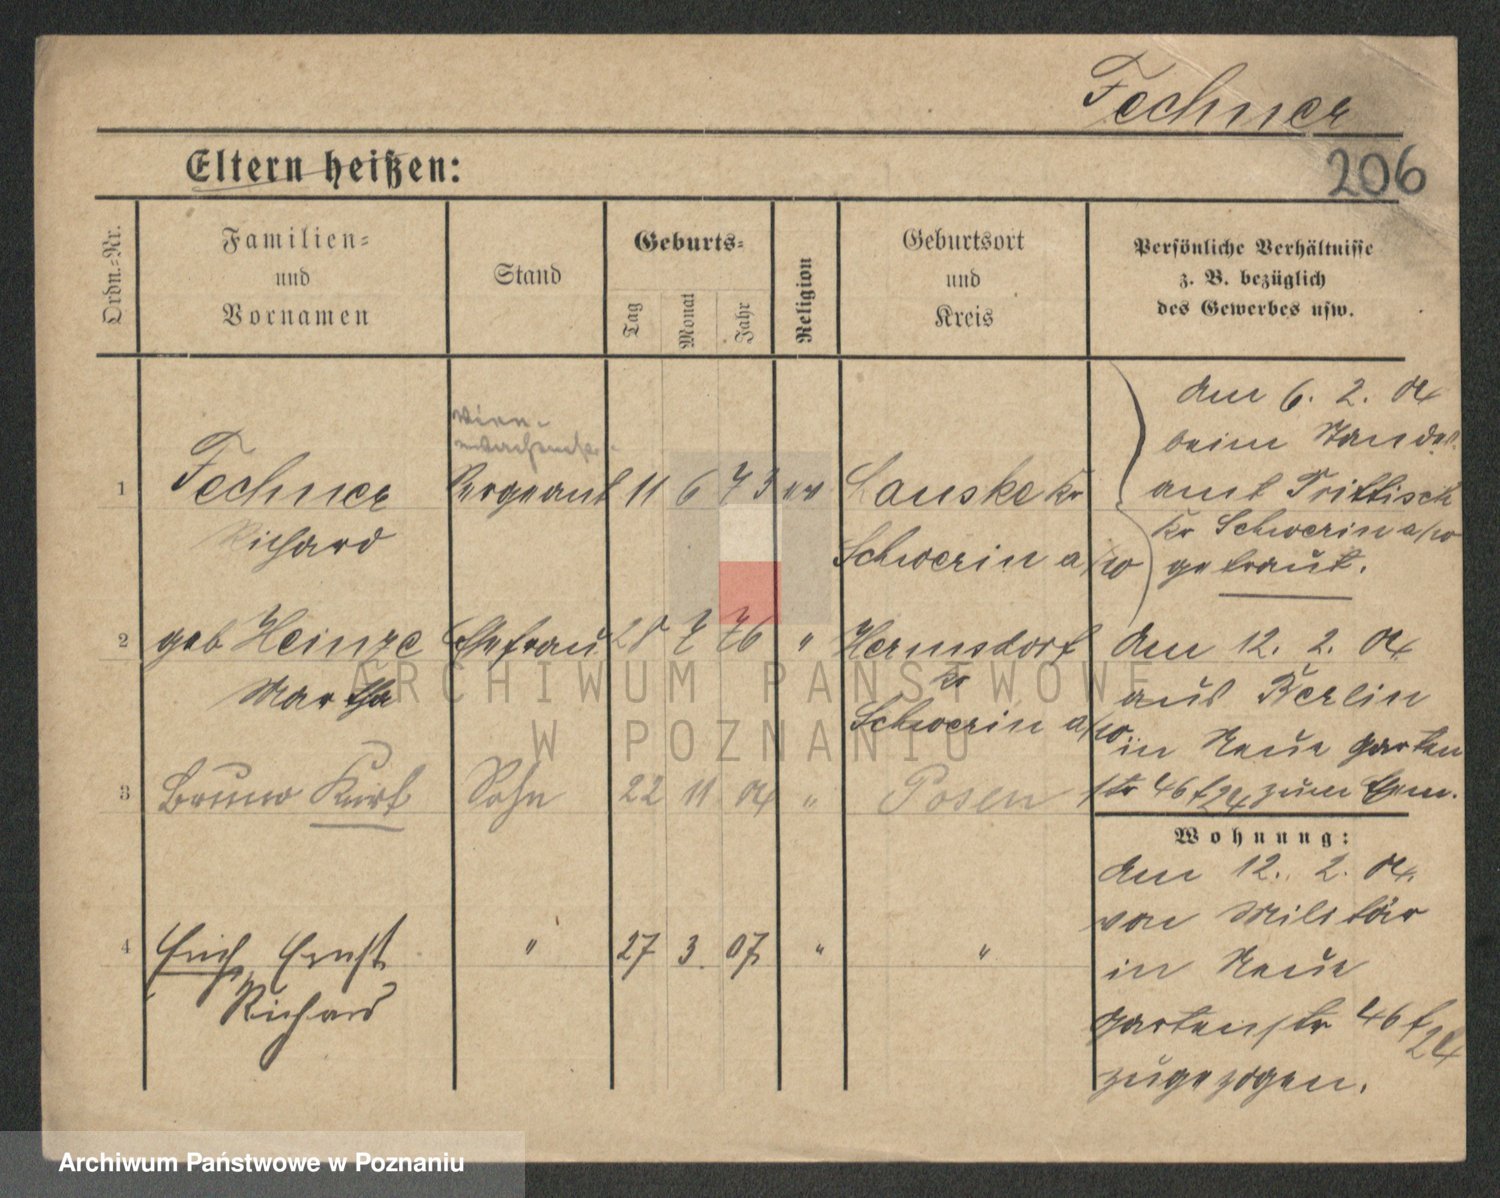 Fechner
206
Eltern heißen:
Ordn.-Nr.
Familien-
und
Vornamen
Stand
Geburts-
Tag
Monat
Jahr
Religion
Geburtsort
und
Kreis
Persönliche Verhältnisse
z. B. bezüglich
des Gewerbes usw.
1
Fechner
Richard
Sergeant
11 6 73 ev
Lauske Kr
Schwerin a/W
Am 6. 2. 04
beim Standes-
amt Trittisch
Kr Schwerin a/W
getraut.
2
geb Heinze
Martha
Ehefrau
28 7 76 "
Hermsdorf
Kr
Schwerin a/W
Am 12. 2. 04
aus Berlin
in Neue Garten
str 46 f24 zum Ehem.
3
Bruno Kurt
Sohn
22 11 04 "
Posen
Wohnung:
Am 12. 2. 04.
von Militär
in Neue
Gartenstr 46 f24
zugezogen.
4
Erich Ernst
Richard
"
27 3. 07. "
"
ARCHIWUM PAŃSTWOWE
W POZNANIU
Archiwum Państwowe w Poznaniu